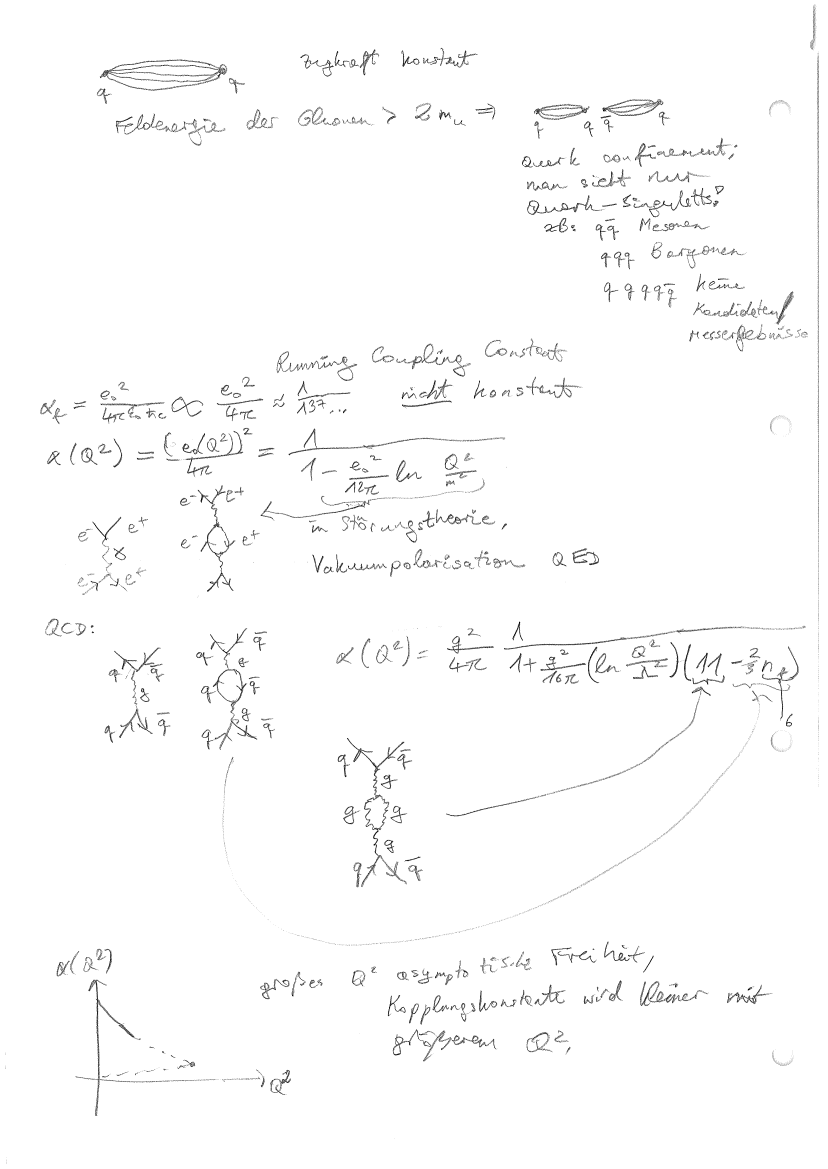 Zugkraft konstant
q q
Feldenergie der Gluonen > 2 mᵤ ⇒
q q q̄ q
Quark confinement;
man sieht nur
Quark-Singuletts!
zB: qq̄ Mesonen
qqq Baryonen
q q q q q̄ keine
Kandidaten/
Messergebnisse
Running Coupling Constant
α_f = e₀²/4πε₀ħc ∝ e₀²/4π ≈ 1/137... nicht konstant
α(Q²) = (e₀(Q²))²/4π = 1/(1 - e₀²/12π ln Q²/m²)
e⁻ e⁺ e⁻ e⁺
γ e⁻ e⁺
e⁻ e⁺
in Störungstheorie,
Vakuumpolarisation QED
QCD:
α(Q²) = g²/4π 1/(1 + g²/16π (ln Q²/Λ²)(11 - 2/3 n_f))
6
q q̄ q q̄
g g
q q̄
g
q q̄ q q̄
q q̄
g
g g
g
q q̄
α(Q²)
großes Q² asymptotische Freiheit,
Kopplungskonstante wird kleiner mit
größerem Q².
Q²